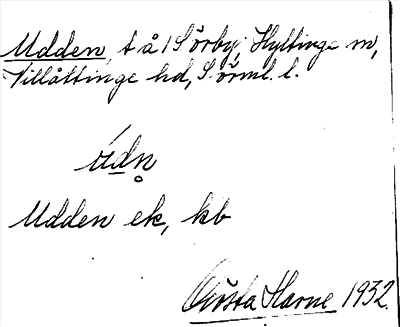 Udden, t å 1 Sörby, Hyltinge sn,
Villåttinge hd, Sörml. l.
ùdn̥
Udden ek, kb
Gösta Harne 1932.